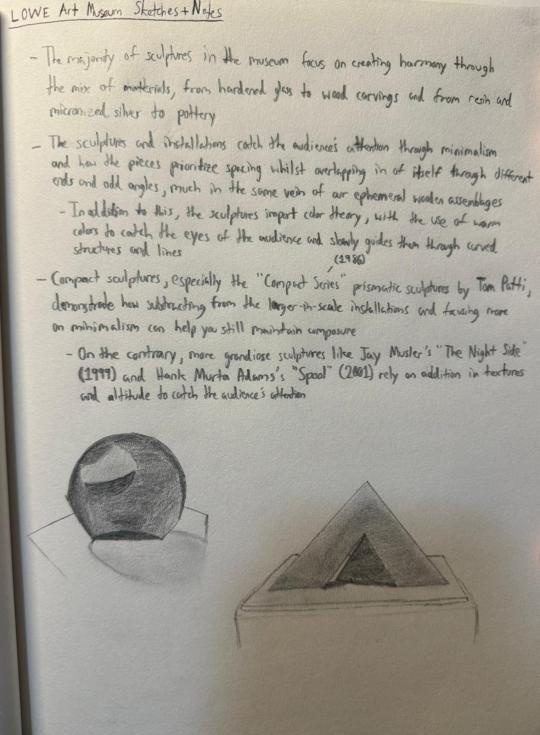 LOWE Art Museum Sketches + Notes
- The majority of sculptures in the museum focus on creating harmony through
the mix of materials, from hardened glass to wood carvings and from resin and
micronized silver to pottery
- The sculptures and installations catch the audience's attention through minimalism
and how the pieces prioritize spacing whilst overlapping in of itself through different
ends and odd angles, much in the same vein of our ephemeral wooden assemblages
- In addition to this, the sculptures import color theory, with the use of warm
colors to catch the eyes of the audience and slowly guides them through curved
structures and lines
(1986)
- Compact sculptures, especially the "Compact Series" prismatic sculptures by Tom Patti,
demonstrate how subtracting from the larger-in-scale installations and focusing more
on minimalism can help you still maintain composure
- On the contrary, more grandiose sculptures like Jay Musler's "The Night Side"
(1999) and Hank Murta Adams's "Spool" (2001) rely on addition in textures
and altitude to catch the audience's attention